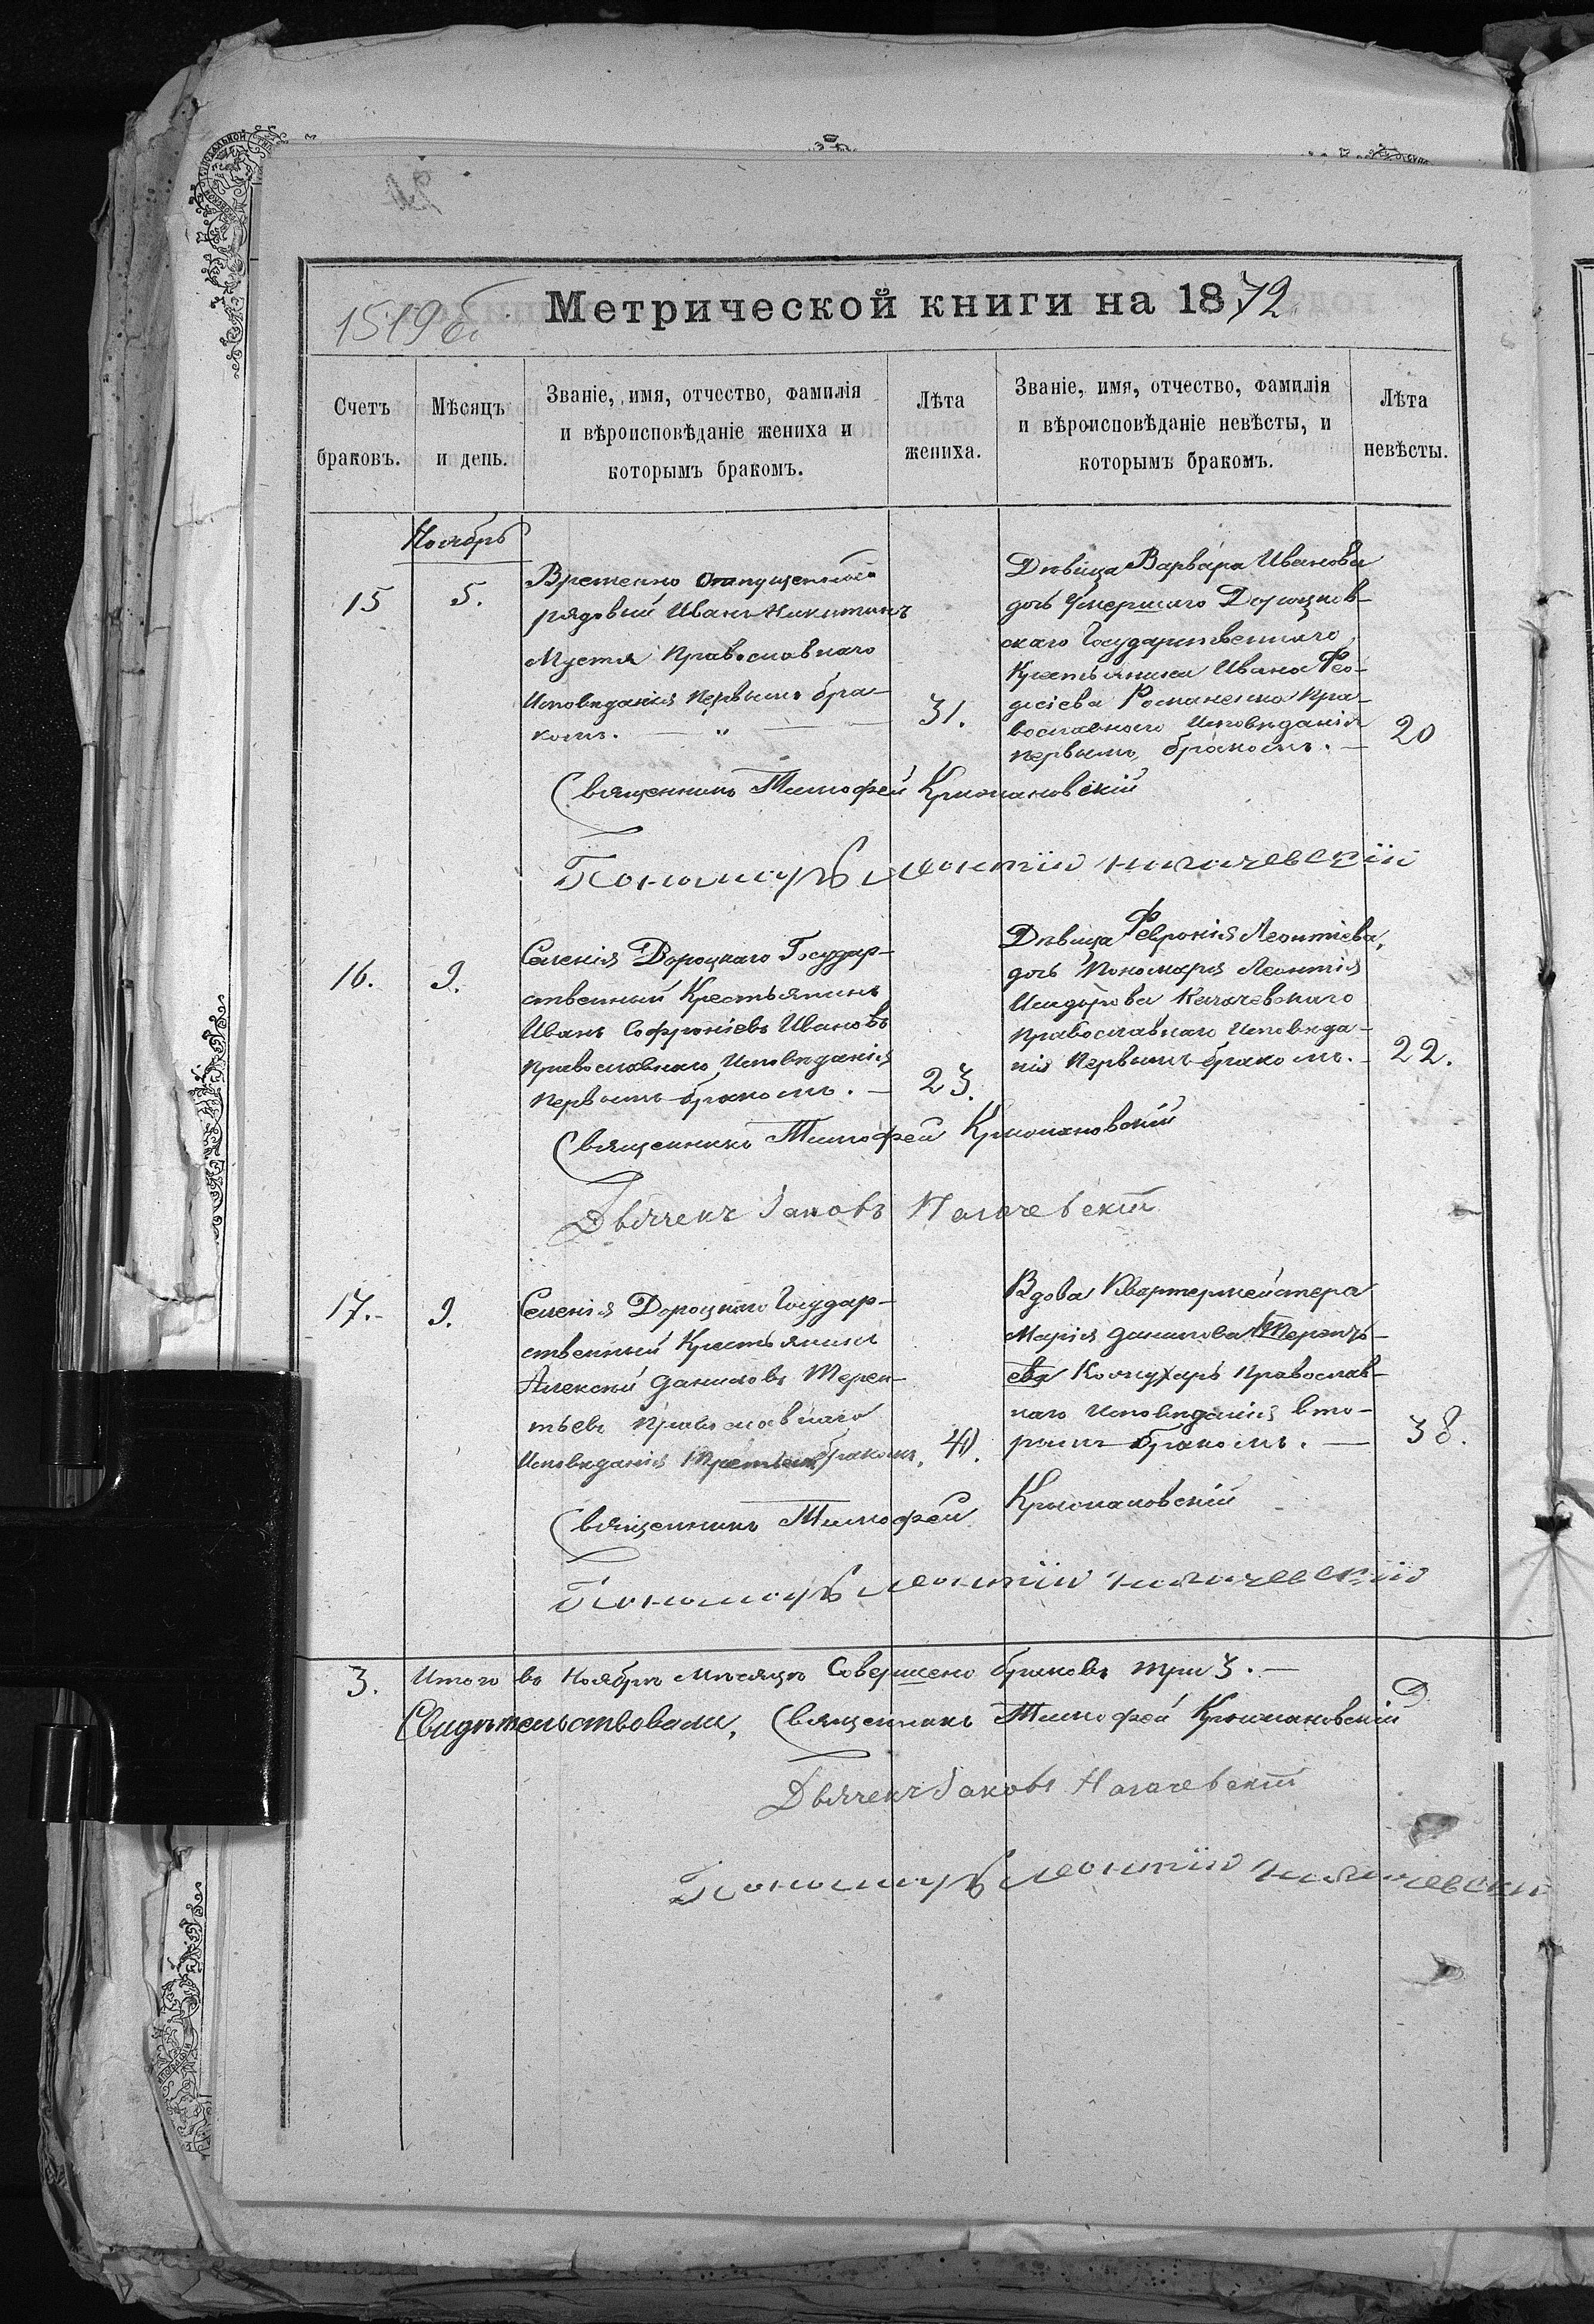 1519 об
Метрической книги на 1872
Счетъ браковъ.
Мѣсяцъ и день.
Званіе, имя, отчество, фамилія
и вѣроисповѣданіе жениха и
которымъ бракомъ.
Лѣта жениха.
Званіе, имя, отчество, фамилія
и вѣроисповѣданіе невѣсты, и
которымъ бракомъ.
Лѣта невѣсты.
Ноябрь
15
5.
Временно отпущенный
рядовый Иванъ Никитинъ
Мустя Православнаго
Исповѣданія первымъ бра-
комъ. — „ —
31.
Дѣвица Варвара Иванова
дочь умершаго Дороцков-
скаго Государственнаго
Крестьянина Ивана Фео-
досіева Романенка Пра-
вославнаго Исповѣданія
первымъ бракомъ. —
20
Священникъ Тимофей
Пономарь Леонтій
16.
9.
Селенія Дороцкаго Государ-
ственный Крестьянинъ
Иванъ Софроніевъ Ивановъ
Православнаго Исповѣданія
Первымъ бракомъ. —
23.
Дѣвица Феѵронія Леонтіева,
дочь Пономаря Леонтія
Исидорова
Православнаго Исповѣда-
нія Первымъ бракомъ. —
22.
Священникъ Тимофей
Дьячекъ Іаковъ
17.
9.
Селенія Дороцкаго Государ-
ственный Крестьянинъ
Алексей Даниловъ Терен-
тьевъ Православнаго
Исповѣданія Третьимъ бракомъ.
41.
Вдова Квартермейстера
Марія Данилова Терентъ-
ева Кожухарь Православ-
наго Исповѣданія вто-
рымъ бракомъ. —
38.
Священникъ Тимофей
Пономарь Леонтій
3.
Итого въ Ноябрѣ Мѣсяцѣ Совершено браковъ три 3. —
Свидѣтельствовали, Священникъ Тимофей
Дьячекъ Іаковъ
Пономарь Леонтій